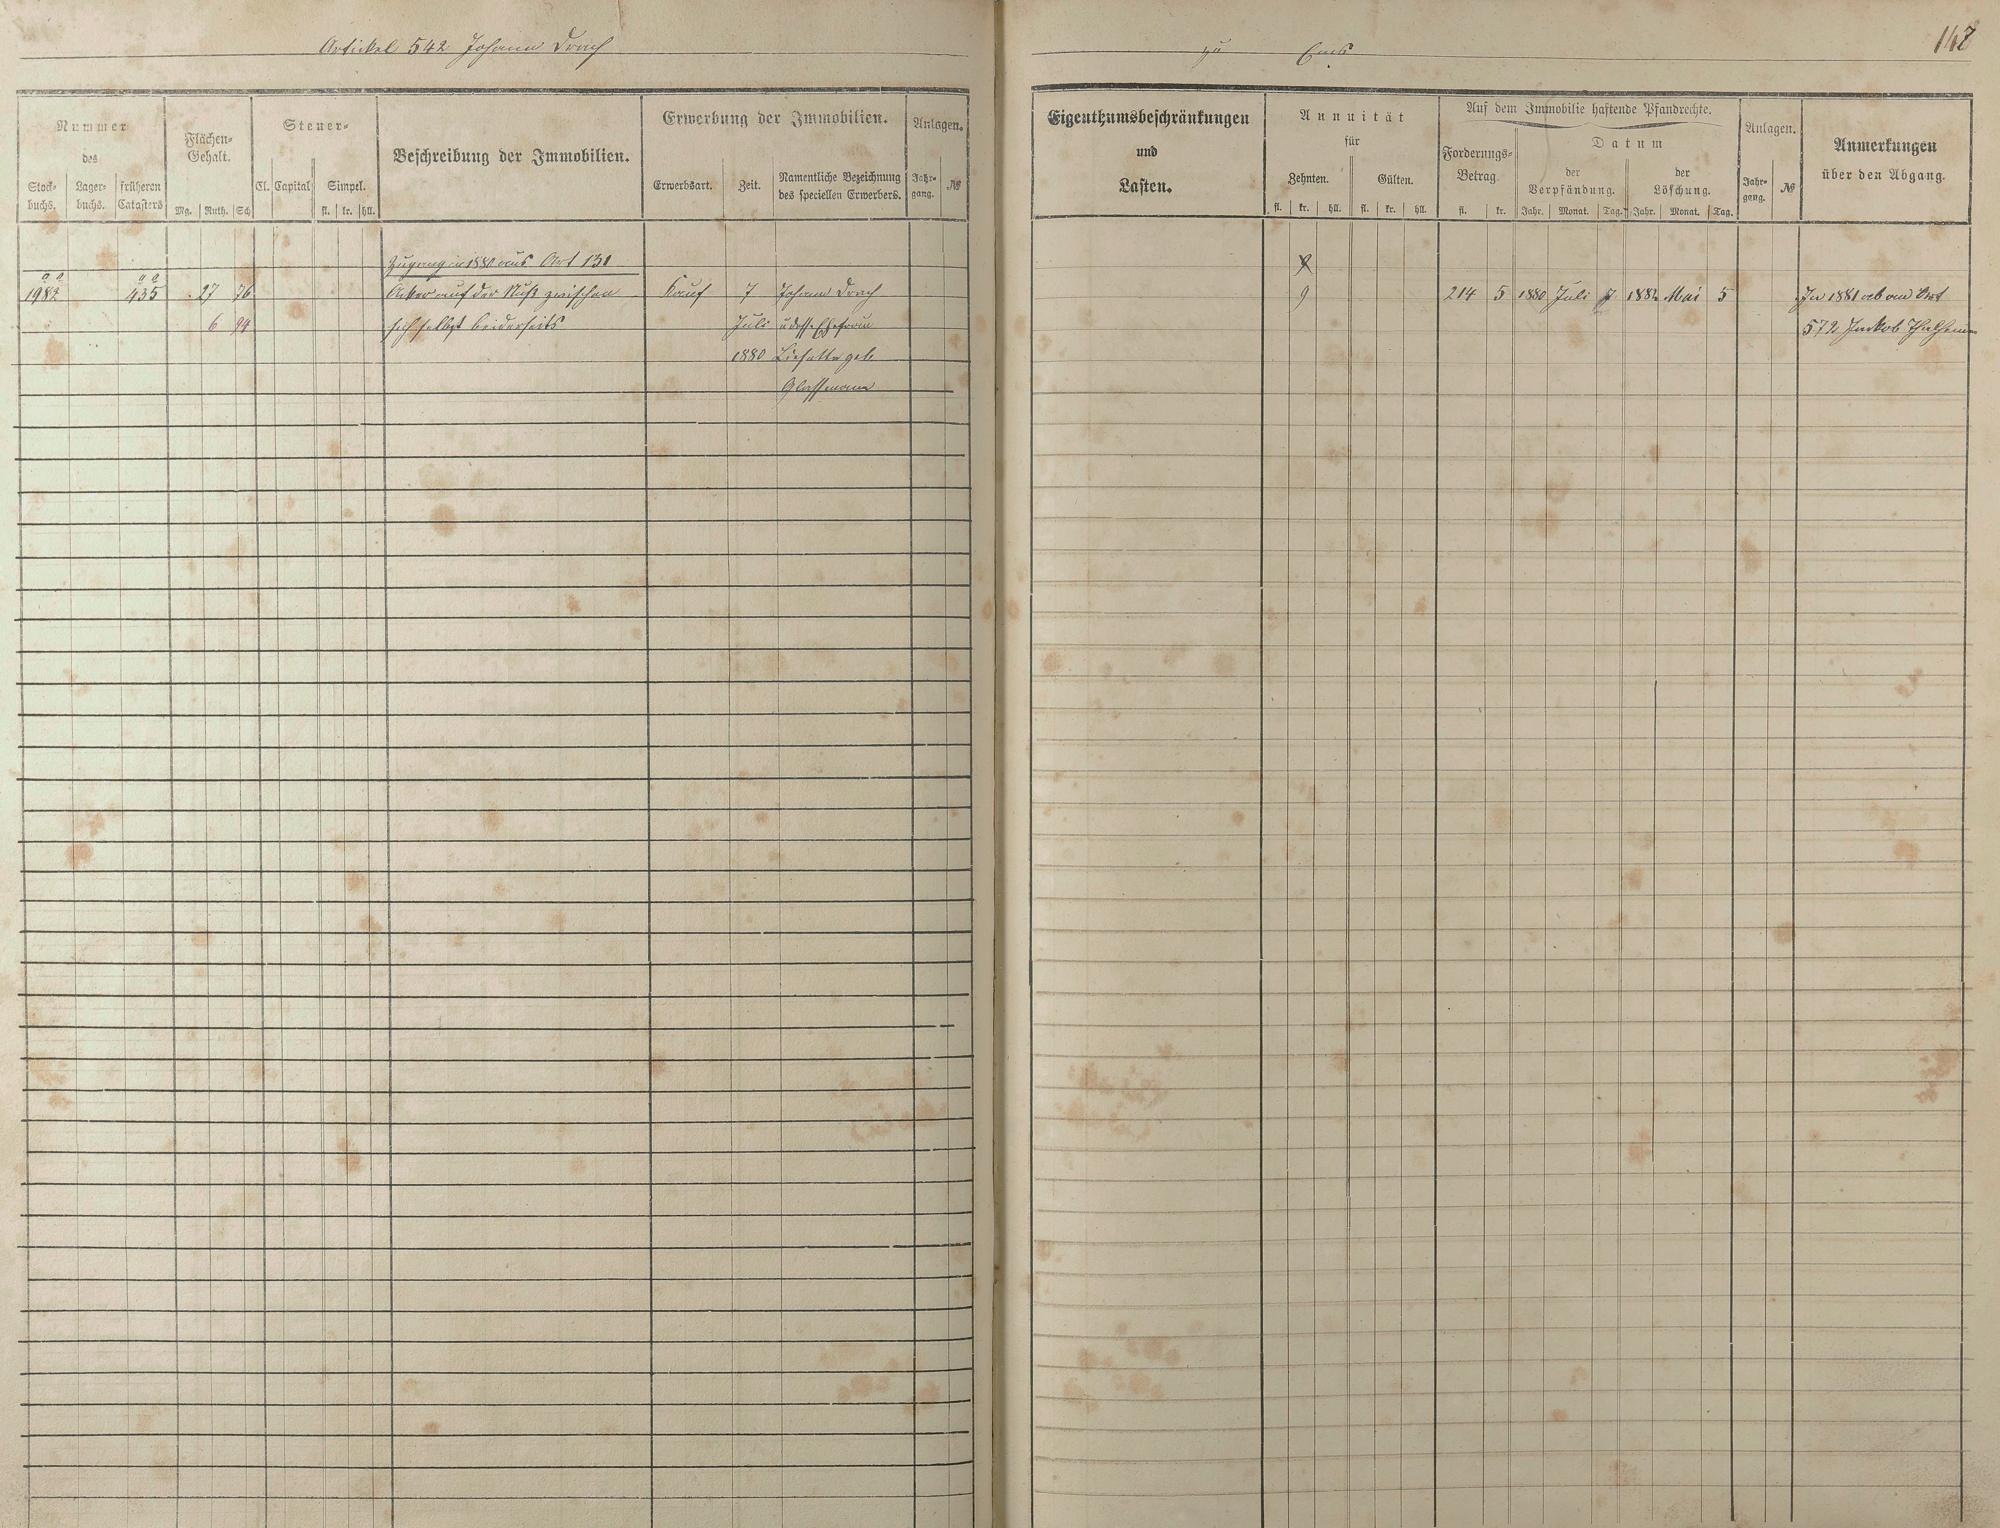 Artickel 542 Johann Drach
zu Ems
Nummer
des
Stock-
buchs.
Lager-
buchs.
früheren
Catasters
Flächen-
Gehalt.
Mg. Ruth. Sch
Steuer-
Cl. Capital Simpel.
fl. kr. hll.
Beschreibung der Immobilien.
Erwerbung der Immobilien.
Erwerbsart. Zeit.
Namentliche Bezeichnung
des speciellen Erwerbers.
Anlagen.
Jahr-
gang.
№
Zugang in 1880 aus Art 131
435 27 76 Acker auf der zwischen Kauf 7 Johann Drach
6 94 sich selbst beiderseits Juli u dess Ehefrau
1880 Lisette geb.
Glassmann
Eigenthumsbeschränkungen
und
Lasten.
Annuität
für
Zehnten. Gülten.
fl. kr. hll. fl. kr. hll.
Auf dem Immobilie haftende Pfandrechte.
Forderungs-
Betrag.
fl. kr.
Datum
der
Verpfändung.
Jahr. Monat. Tag.
der
Löschung.
Jahr. Monat. Tag.
Anlagen.
Jahr-
gang.
№
Anmerkungen
über den Abgang.
9 214 5 1880 Juli 7 1882 Mai 5 In 1881 ab an Art
572 Jackob